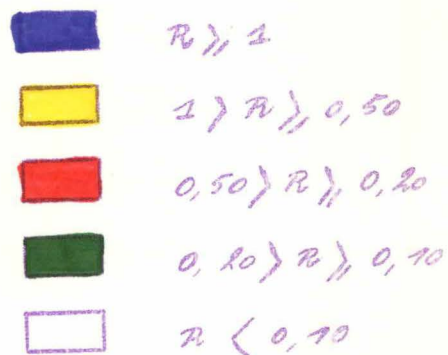 R ⩾ 1
1 > R ⩾ 0,50
0,50 > R ⩾ 0,20
0,20 > R ⩾ 0,10
R < 0,10